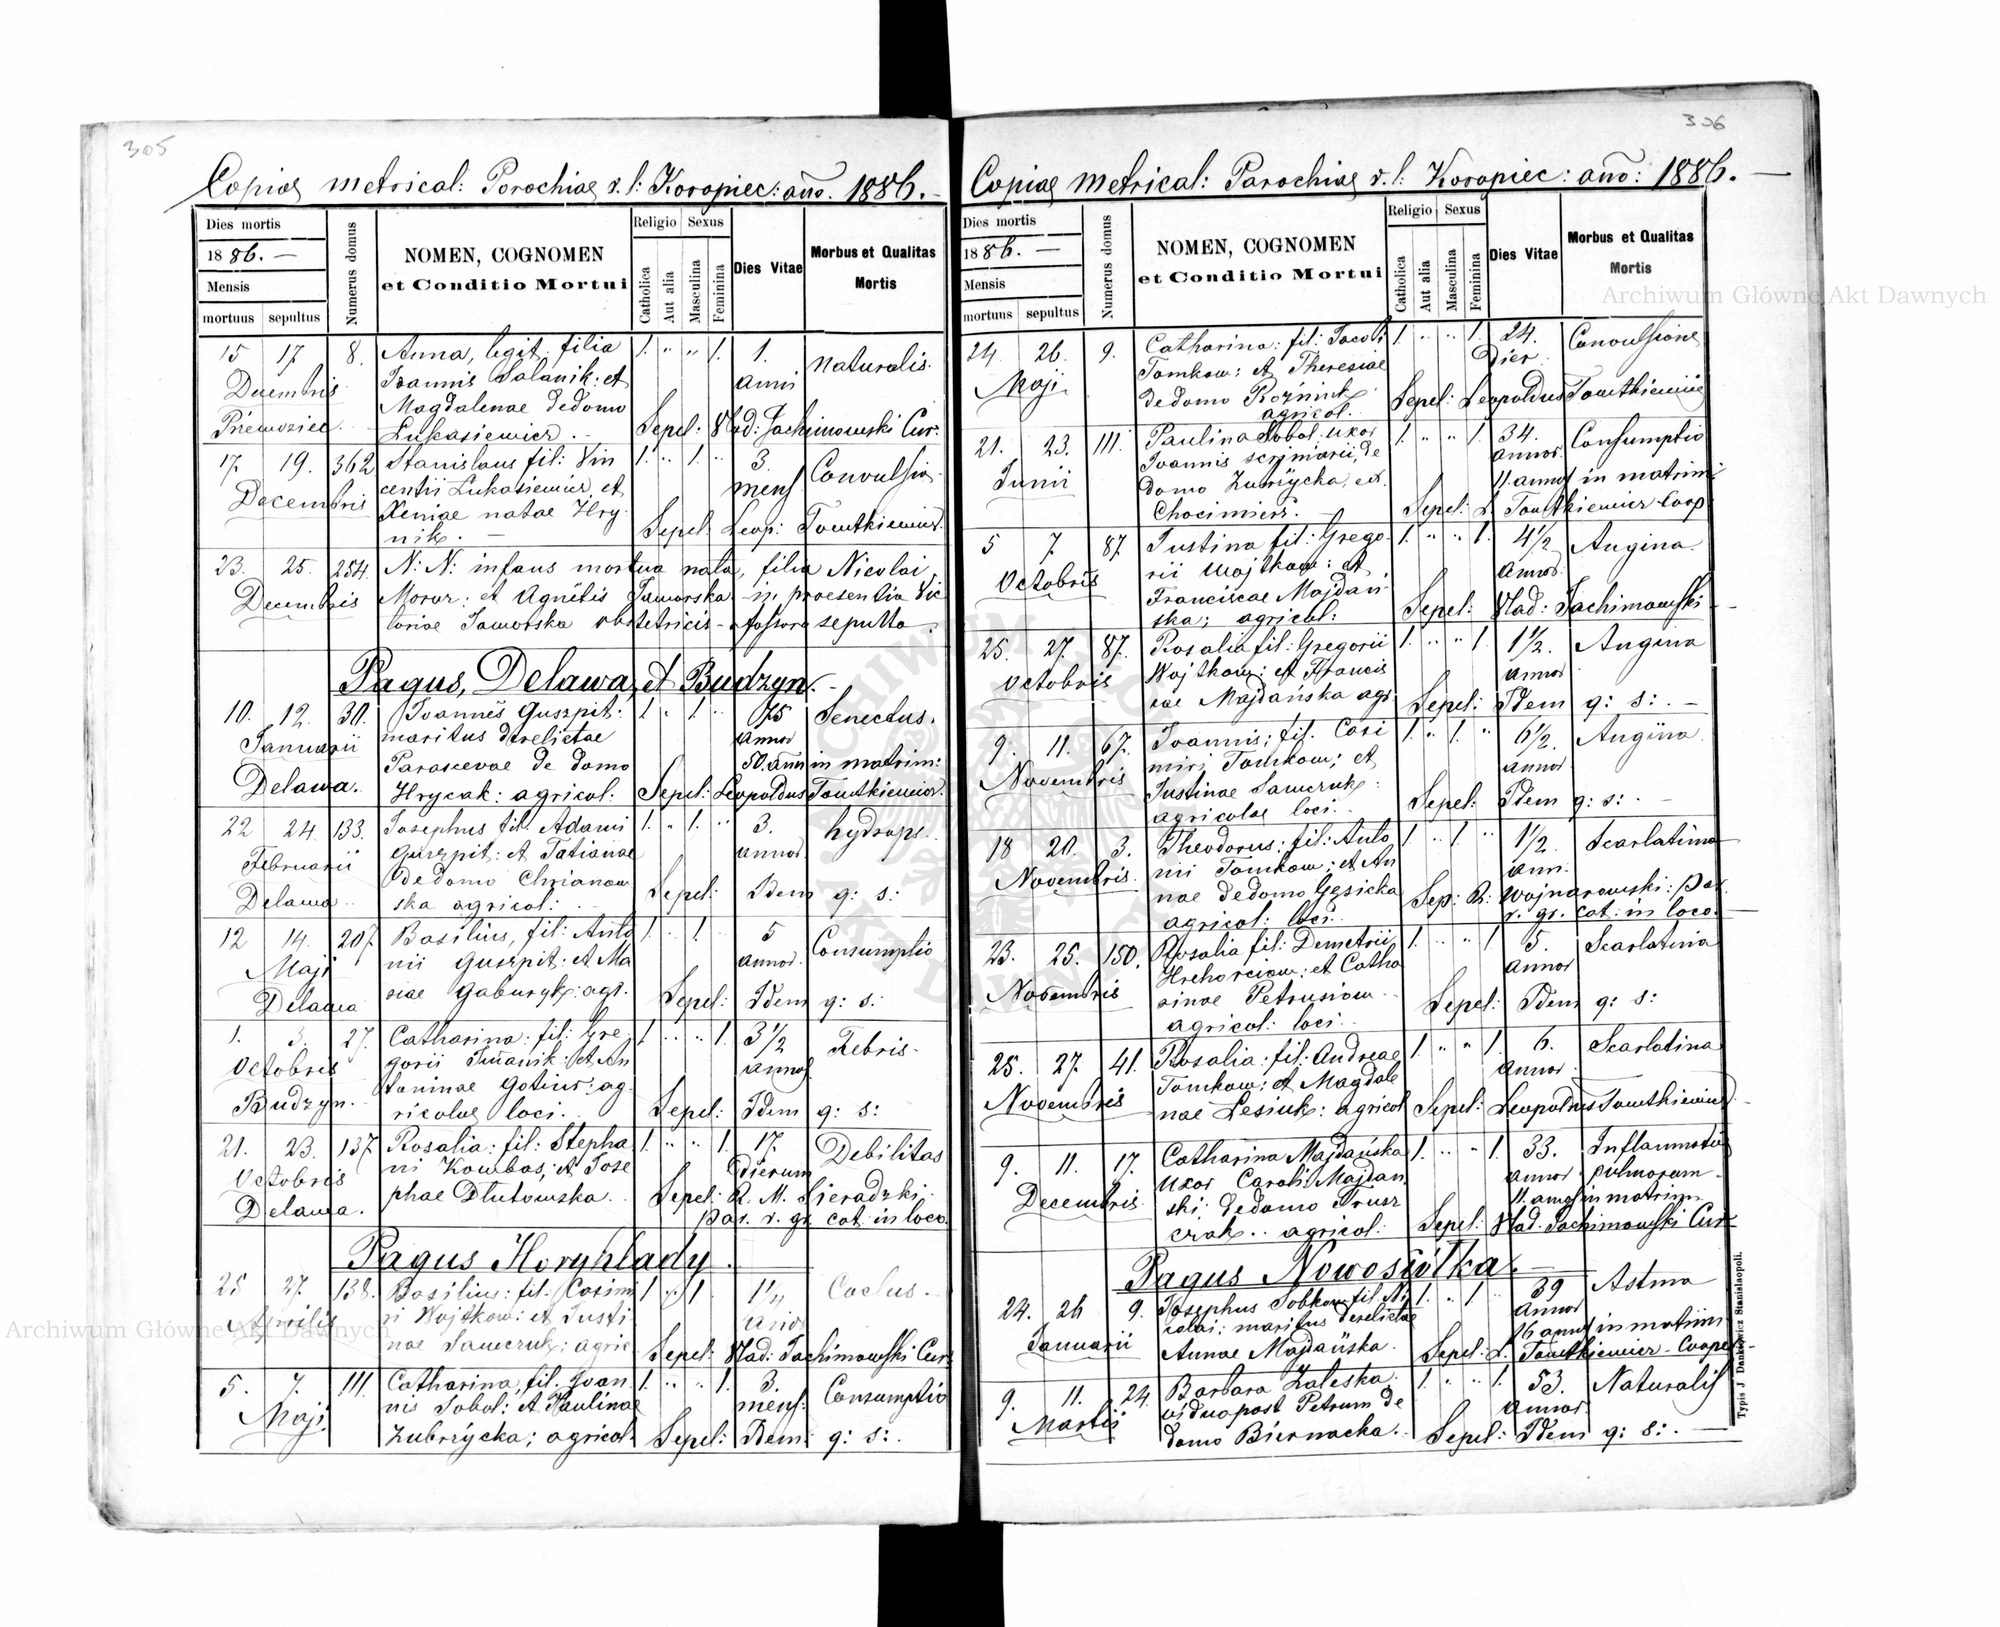 305
Copiae metrical: Parochiae r. l: Koropiec: año. 1886.
Dies mortis
1886. —
Mensis
mortuus sepultus
Numerus domus
NOMEN, COGNOMEN
et Conditio Mortui
Religio Sexus
Catholica
Aut alia
Masculina
Feminina
Dies Vitae
Morbus et Qualitas
Mortis
15 17 8. Anna, legit. filia 1. " " 1. 1. Naturalis.
Decembris Joannis Salanik: et anni
Magdalenae de domo
Łukasiewicz. Sepel: Wlad: Jachimowski Cur:
17. 19. 362 Stanislaus fil: Vin 1. " 1. " 3. Convulsio
Decembris centii Łukasiewicz et mens
Xeniae natae Hry
nik. — Sepel: Leop:
23. 25. 254. N: N: infans mortua nata, filia Nicolai
Decembris Moroz: et Agnetis Jaworska in praesentia Vic
toriae Jaworska obstetricis fossore sepulta.
Pagus, Delawa, et Budzyn.
10. 12. 30. Joannes Guszpit: 1. " 1. " 75 Senectus.
Januarii maritus derelictae annor
Parascevae de domo 50. anni in matrim:
Delawa. Hrycak: agricol: Sepel: Leopoldus
22 24. 133. Josephus fil. Adami 1. " 1. " 3. hydrops.
Februarii Guszpit: et Tatianae annor
De domo Chrianow
Delawa ska agricol: Sepel: Idem q: s:
12 14. 207. Basilius, fil: Anto 1. " 1. 5 Consumptio
Maji nii Guszpit: et Ma annor.
Delawa riae Gaburyk: agr. Sepel: Idem q: s:
1. 3. 27. Catharina: fil: Gre 1. " " 1. 3 1/2 Febris.
Octobris gorii et An annor
toninae agr
Budzyn. ricolae loci. Sepel: Idem q: s:
21. 23. 137. Rosalia: fil: Stepha 1. " " 1. 17. Debilitas
Octobris ni Kombas, et Jose dierum
phae Dłutowska. Sepel: R. M. Sieradzki
Delawa. par. r. gr. cat: in loco.
Pagus Horyhlady.
25 27. 138. Basilius: fil: Casimi 1 " 1 1/4
Aprilis ri Wojtkow: et Justi
nae Sawczuk: agric Sepel: Wlad: Jachimowski Cur:
5. 7. 111. Catharina, fil. Joan 1. " " 1. 3. Consumptio
Maji. nis Sobol: et Paulinae mens:
Zubrzycka; agricol. Sepel: Idem q: s:.
306
Copiae metrical: Parochiae r. l: Koropiec: año: 1886. —
Dies mortis
1886. —
Mensis
mortuus sepultus
Numerus domus
NOMEN, COGNOMEN
et Conditio Mortui
Religio Sexus
Catholica
Aut alia
Masculina
Feminina
Dies Vitae
Morbus et Qualitas
Mortis
24. 26. 9. Catharina: fil: Jacobi 1. " " 1. 24. Convulsione
Maji Tomkow: et Theresiae Dier.
de domo Sepel: Leopoldus
agricol.
21. 23. 111. Paulina Sobol. uxor 1. " " 1. 34. Consumptio
Junii Joannis scriniarii, de annor
domo Zubrzycka, ex 11. annos in matrimo
Chocimierz. Sepel: L. Coop
5 7. 87. Justina fil: Grego 1. " " 1. 4 1/2 Angina.
Octobris rii Wojtkow: et annor
Franciscae Majdań
ska; agricol: Sepel: Wlad: Jachimowski
25. 27. 87. Rosalia fil: Gregorii 1. " " 1. 1 1/2. Angina
Octobris Wojtkow: et Francis annor
cae Majdańska agr. Sepel: Idem q: s: . —
9. 11. 67. Joannis; fil. Casi 1. " 1. " 6 1/2. Angina
Novembris miri Tomkow; et annor
Justinae Sawczuk:
agricolae loci. Sepel: Idem q: s: . —
18 20. 3. Theodorus: fil: Anto 1. " 1. " 1 1/2. Scarlatina
Novembris. nii Tomkow: et An ann:
nae de domo Gęsicka Sep: R: Wojnarowski: par.
agricol: loci. r. gr. cat: in loco.
23. 25. 150. Rosalia fil: Demetrii 1. " " 1 5. Scarlatina
Novembris Hrehorciow: et Catha annor
rinae Petrusiow
agricol: loci. Sepel: Idem q: s:
25. 27. 41. Rosalia: fil: Andreae 1. " " 1. 6. Scarlatina
Novembris Tomkow: et Magdale annor
nae Lesiuk: agricol Sepel: Leopoldus
9. 11. 17. Catharina Majdańska 1. " " 1. 33. Inflammatio
Decembris Uxor Caroli Majdan annor pulmorum
ski: de domo 11. annos in matrim
agricol: Sepel: Wlad. Jachimowski Cur
Pagus Nowosiółka. —
24. 26 9. Josephus Sobkow fil. Ni 1. " 1 " 39 Astma
Januarii colai: maritus derelictae annor
Annae Majdańska. 16 annos in matrim
Sepel: L. Cooper
9. 11. 24. Barbara Zaleska. 1. " " 1. 53. Naturalis
Martii vidua post Petrum de annor
domo Biernacka. Sepel: Idem q: s: . —
Typis J Dankiewicz Stanislaopoli.
Archiwum Główne Akt Dawnych
Archiwum Główne Akt Dawnych
ARCHIWUM GŁÓWNE AKT DAWNYCH